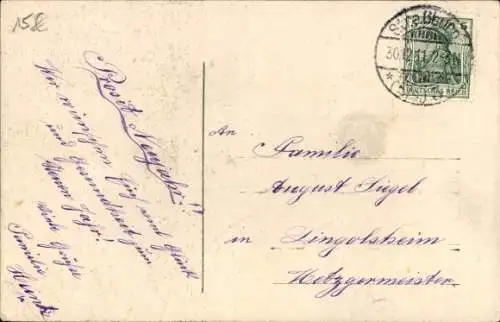 15 8
Prosit Neujahr!!
Wir wünschen Euch viel Glück
und Gesundheit zum
neuen Jahr!
viele Grüße
Familie
Kuntz
Straßburg
30.12.11. 2-3
DEUTSCHES REICH
An
Familie
August Sigel
in
Lingolsheim
Metzgermeister